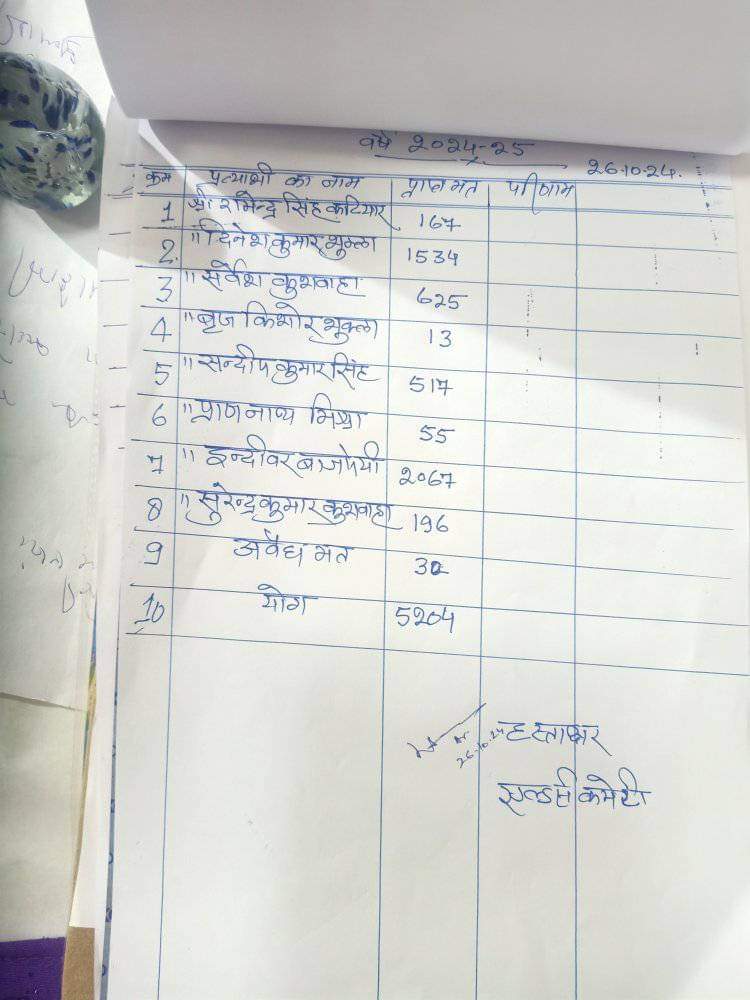 वर्ष 2024-25
26.10.24.
क्रम प्रत्याशी का नाम प्राप्त मत परिणाम
1 श्री रामेन्द्र सिंह कटियार 167
2. " दिनेश कुमार शुक्ला 1534
3 " सर्वेश कुशवाहा 625
4 " बृज किशोर शुक्ला 13
5 " सन्दीप कुमार सिंह 517
6 " प्राण नाथ मिश्रा 55
7 " इन्दीवर बाजपेयी 2067
8 " सुरेन्द्र कुमार कुशवाहा 196
9 अवैध मत 30
10 योग 5204
26.10.24 हस्ताक्षर
एल्डर्स कमेटी